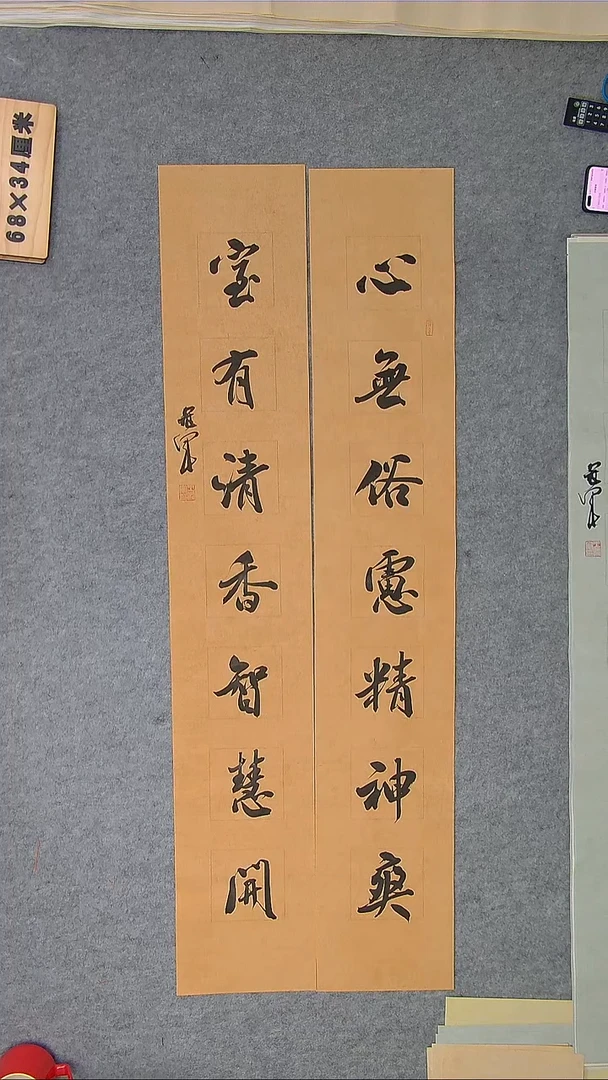 心無俗慮精神爽
室有清香智慧開
68×34厘米